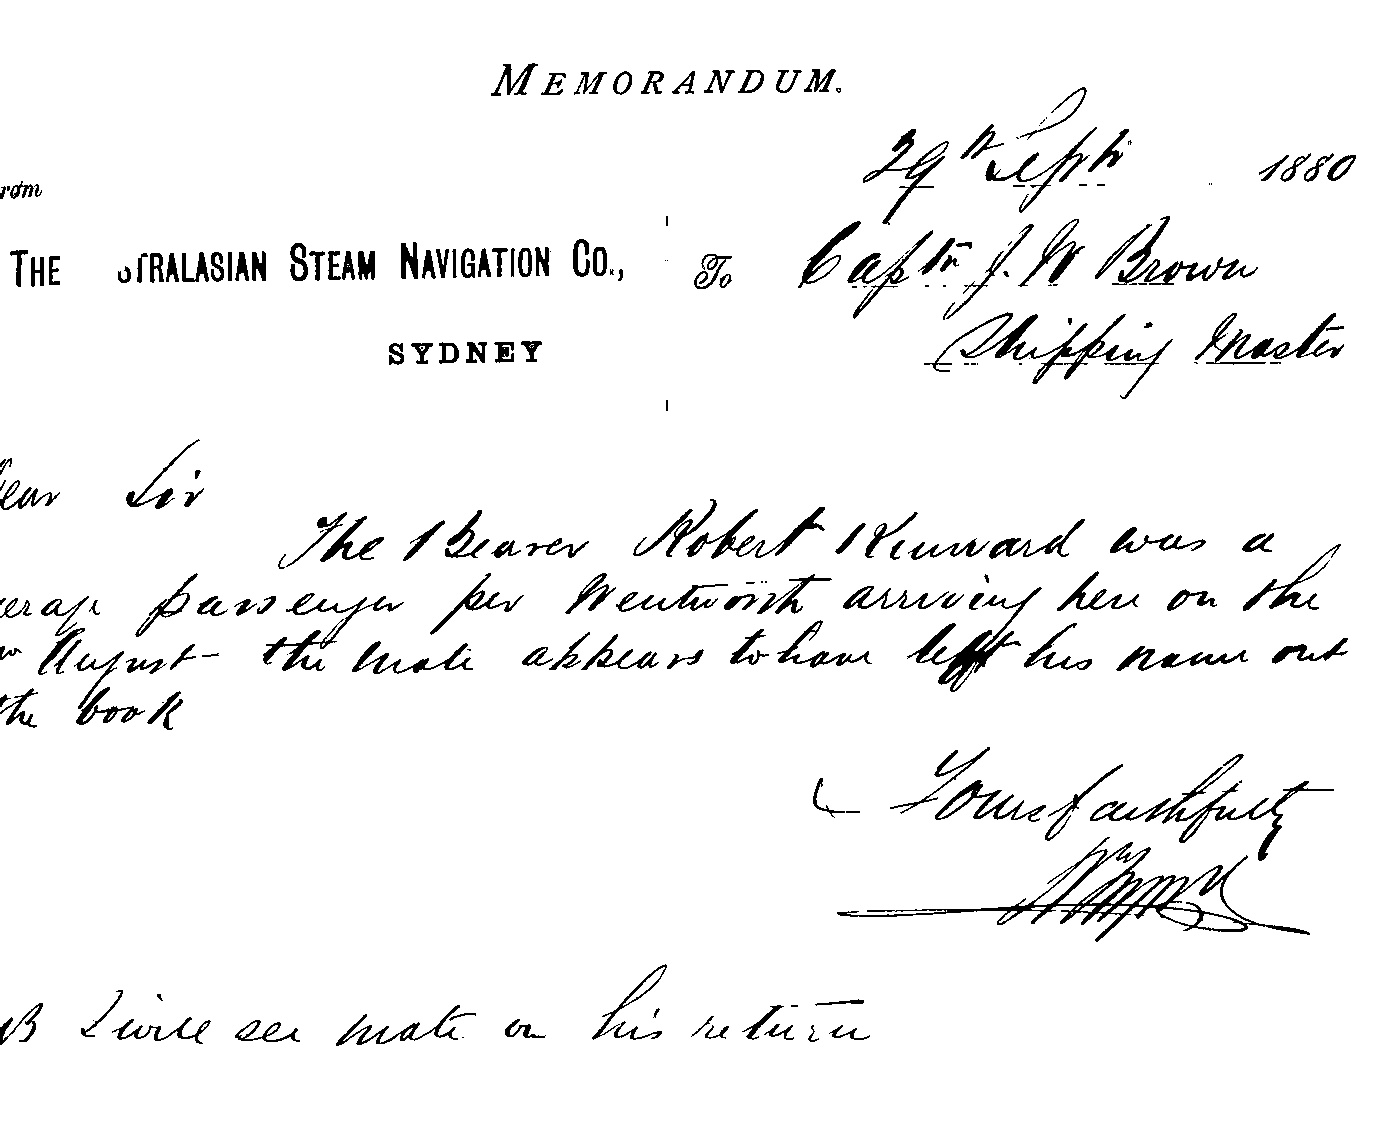 MEMORANDUM.
29th Septr 1880
rom
THE STRALASIAN STEAM NAVIGATION CO.,
To Captn J. W Brown
SYDNEY
Shipping Master
ear Sir
The Bearer Robert Kennard was a
erage passenger per Wentworth arriving here on the
August - the mate appears to have left his name out
the book
Yours faithfully
B I will see mate on his return